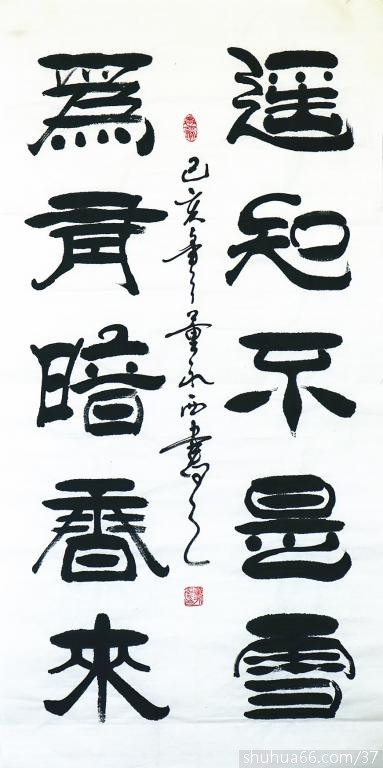 遥知不是雪
爲有暗香來
己亥年董永西書
shuhua66.com/37